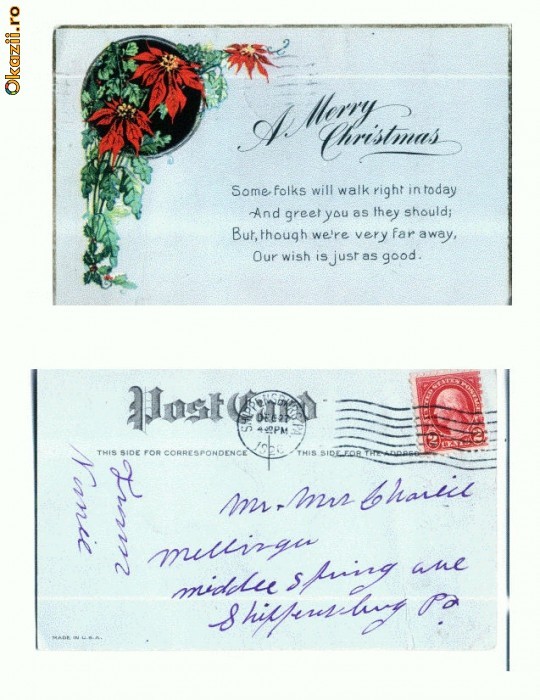 Okazii.ro
A Merry
Christmas
Some folks will walk right in today
And greet you as they should;
But, though we're very far away,
Our wish is just as good.
Post Card
DEC 22
4 PM
UNITED STATES POSTAGE
2 2
THIS SIDE FOR CORRESPONDENCE
THIS SIDE FOR THE ADDRESS
From
Nanie
Mr. Mrs Charlie
Mellinger
middle Spring ave
Shippensburg Pa
MADE IN U.S.A.